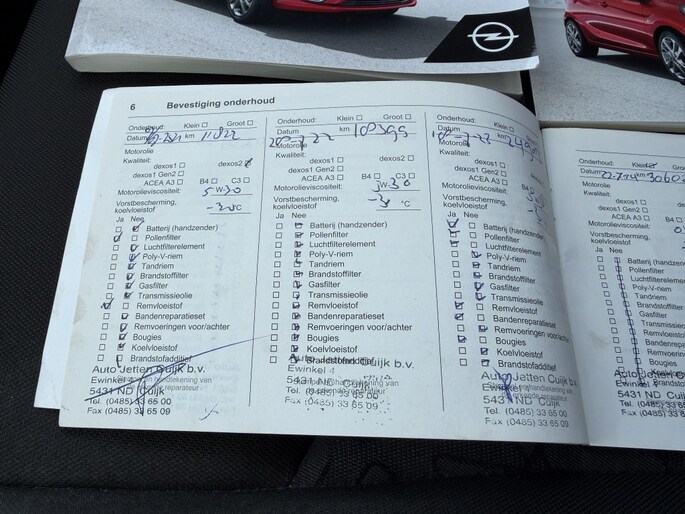 6 Bevestiging onderhoud
Onderhoud: Klein Groot
Datum km 11822
Motorolie
Kwaliteit:
dexos1 dexos2
dexos1 Gen2
ACEA A3 B4 C3
Motorolieviscositeit: 5W-30
Vorstbescherming,
koelvloeistof -30°C
Ja Nee
Batterij (handzender)
Pollenfilter
Luchtfilterelement
Poly-V-riem
Tandriem
Brandstoffilter
Gasfilter
Transmissieolie
Remvloeistof
Bandenreparatieset
Remvoeringen voor/achter
Bougies
Koelvloeistof
Brandstofadditief
Auto Jetten Cuijk b.v.
Ewinkel
5431 ND Cuijk
Tel. (0485) 33 65 00
Fax (0485) 33 65 09
Onderhoud: Klein Groot
Datum km
Motorolie
Kwaliteit:
dexos1 dexos2
dexos1 Gen2
ACEA A3 B4 C3
Motorolieviscositeit: 5W-30
Vorstbescherming,
koelvloeistof °C
Ja Nee
Batterij (handzender)
Pollenfilter
Luchtfilterelement
Poly-V-riem
Tandriem
Brandstoffilter
Gasfilter
Transmissieolie
Remvloeistof
Bandenreparatieset
Remvoeringen voor/achter
Bougies
Koelvloeistof
Brandstofadditief
Auto Jetten Cuijk b.v.
Ewinkel 4
5431 ND Cuijk
Tel. (0485) 33 65 00
Fax (0485) 33 65 09
Onderhoud: Klein Groot
Datum km
Motorolie
Kwaliteit:
dexos1
dexos1 Gen2
ACEA A3 B4
Motorolieviscositeit:
Vorstbescherming,
koelvloeistof
Ja Nee
Batterij (handzender)
Pollenfilter
Luchtfilterelement
Poly-V-riem
Tandriem
Brandstoffilter
Gasfilter
Transmissieolie
Remvloeistof
Bandenreparatieset
Remvoeringen voor/achter
Bougies
Koelvloeistof
Brandstofadditief
Auto Jetten Cuijk b.v.
Ewinkel
5431 ND Cuijk
Tel. (0485) 33 65 00
Fax (0485) 33 65 09
Onderhoud: Klein
Datum 22-7-24 km 30602
Motorolie
Kwaliteit:
dexos1
dexos1 Gen2
ACEA A3
Motorolieviscositeit:
Vorstbescherming,
koelvloeistof
Ja Nee
Batterij (handzender)
Pollenfilter
Luchtfilterelement
Poly-V-riem
Tandriem
Brandstoffilter
Gasfilter
Transmissieolie
Remvloeistof
Bandenreparatieset
Remvoeringen
Bougies
Koelvloeistof
Auto Jetten
Ewinkel
5431 ND Cuijk
Tel. (0485) 33 65
Fax (0485) 33 65